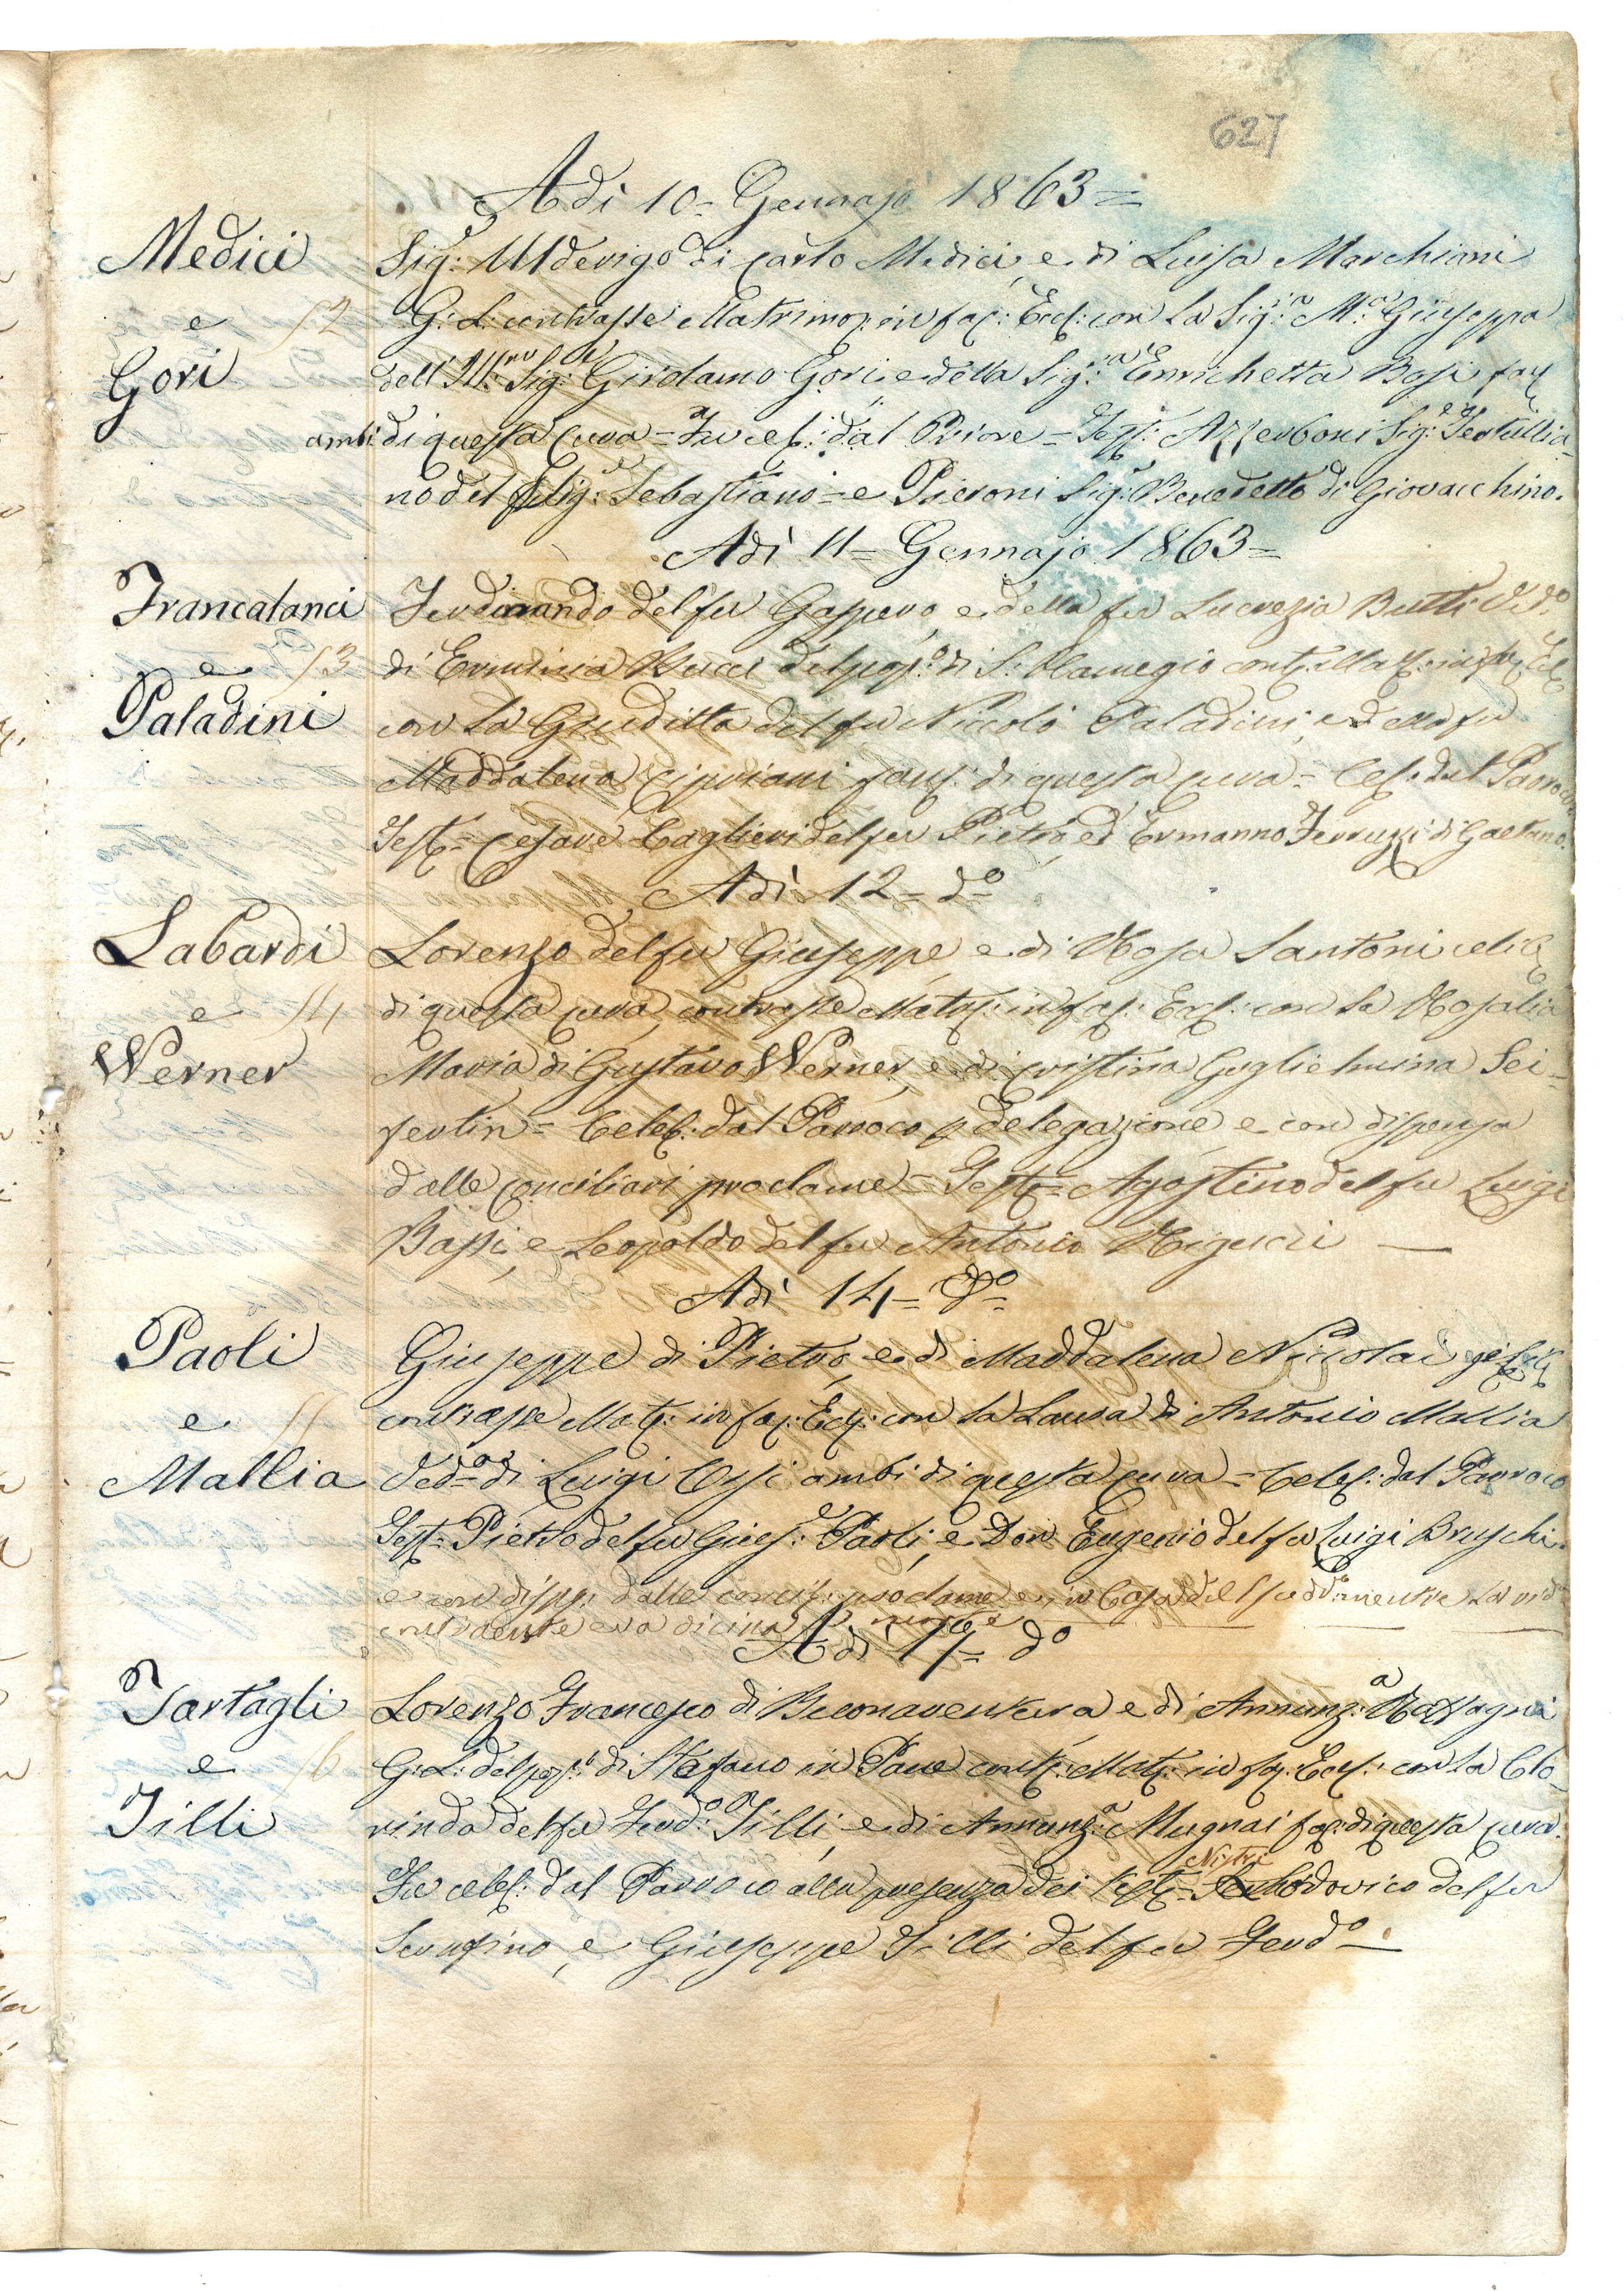 627
Adì 10 = Gennajo 1863 =
Medici Sig:r Ulderigo di Carlo Medici, e di Luisa Marchiani
e 52 G: L: contrasse Matrimo: in fac: Eccl: con la Sig:ra M:a Giuseppa
Gori dell'Ill:mo Sig:r Girolamo Gori, e della Sig:ra Enrichetta Bosi fac
ambi di questa Cura = Fu cel: dal Priore = Test: Azzerboni Sig:r Tertullia-
no del fu Sig:r Sebastiano = e Pieroni Sig:r Benedetto di Giovacchino.
Adì 11 = Gennajo 1863 =
Francalanci Ferdinando del fu Gaspero, e della fu Lucrezia Butti Ved:o
e 53 di Erminia Bucci del pop:o di S. Remigio cont: Mat: in fac: Ecl
Paladini con la Giuditta del fu Niccolò Paladini, e della fu
Maddalena Cipriani fanc: di questa Cura = Cel: dal Parroco
Test: = Cesare Caglieri del fu Pietro, ed Ermanno Ferruzzi di Gaetano.
Adì 12 = d:o
Labardi Lorenzo del fu Giuseppe, e di Rosa Santoni celib
e 54 di questa Cura, contrasse Mat: in fac: Eccl: con la Rosalia
Werner Maria di Gustavo Werner, e di Cristina Guglielmina Sei-
fertin = Celeb: dal Parroco p delegazione e con dispensa
dalle Conciliari proclame = Test: = Agostino del fu Luigi
Bassi, e Leopoldo del fu Antonio Righi —
Adì 14 = d:o
Paoli Giuseppe di Pietro, e di Maddalena Niccolai
e 55 contrasse Mat: in fac: Ecl: con la Laura di Antonio Mallia
Mallia Ved:a di Luigi Ossi ambi di questa Cura = Celeb: dal Parroco
Test: Pietro del fu Gius:e Paoli, e Don Eugenio del fu Luigi Bruschi.
e con disp: dalle concil: proclame e in Casa del mentre la
contraente era vicina a morte
Adì 17 = d:o
Tartagli Lorenzo Francesco di Buonaventura, e di Annunz:a
e 56 G: L: del pop:o di S. Stefano in Pane cont: Mat: in fac: Eccl: con la Clo-
Tilli rinda del fu Ferd:o Tilli, e di Annunz:a Mugnai fac: di questa Cura.
Nistri
Fu celeb: dal Parroco alla presenza dei Test: = Lodovico del fu
Serafino, e Giuseppe Tilli del fu Ferd:o —